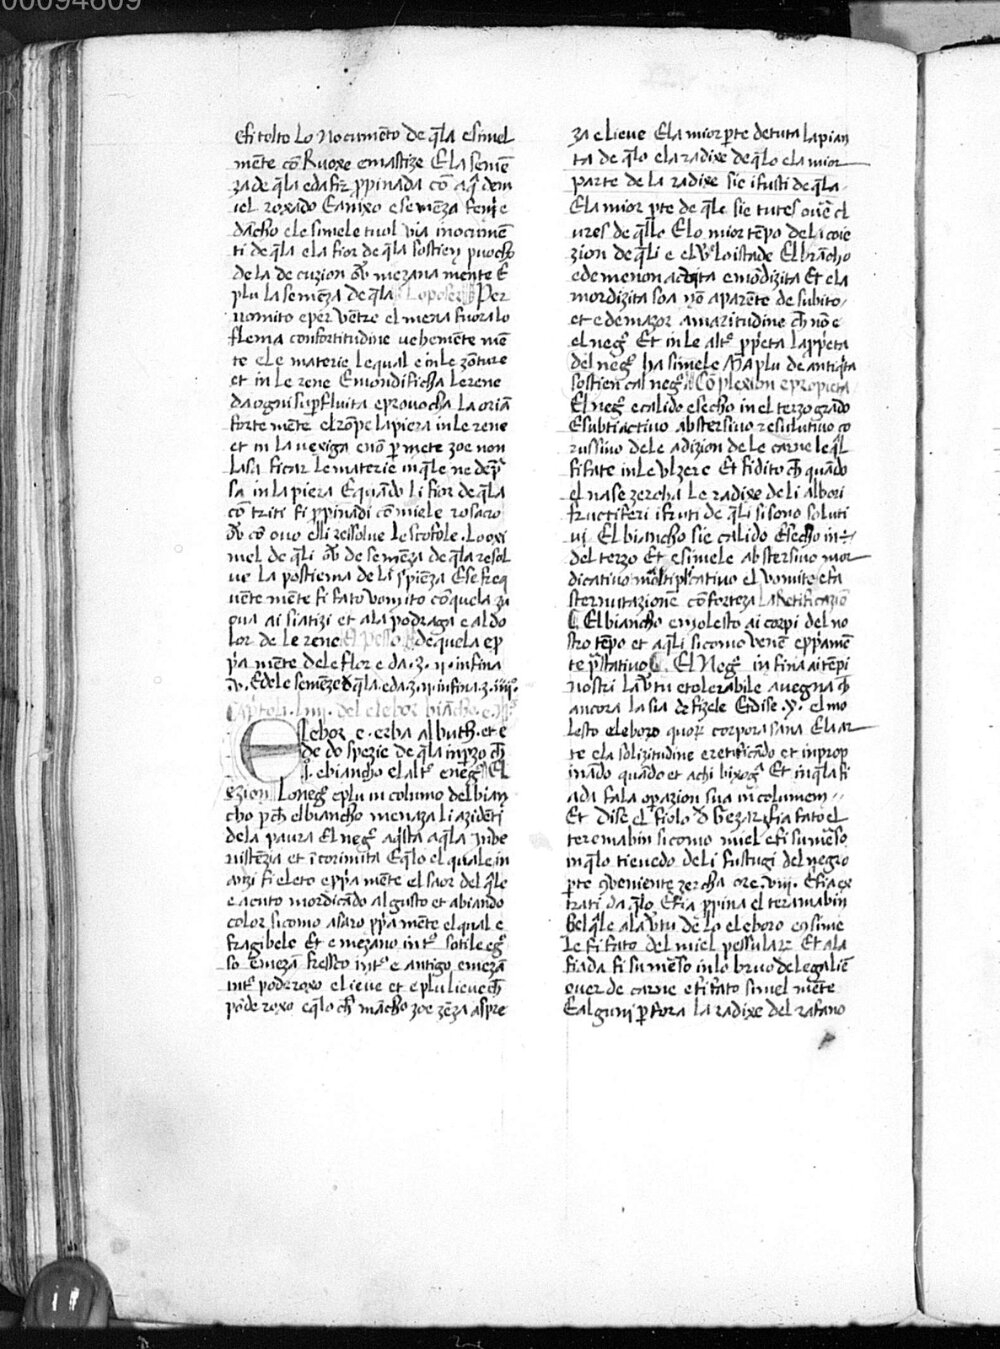 00094609
e fi tolto lo nocumẽto de q̃la e simel
mẽte cõ Ruoxe e mastize E la semẽ
za de q̃la e da fir ꝓpinada cõ aq̃ de m
iel roxado E anixo e semẽza feniȩ
dacħo e le simele tuol via i nocumẽ
ti de q̃la e la fior de q̃la sostien puocħo
de la de cuzion ov̉ mezana mente E
plu la semẽza de q̃la Lo poser Per
uomito e per vẽtre el mena fuora lo
flema con fortitudine uehemẽte mẽ
te e le materie le qual e in le zõture
et in le rene E mondificħa le rene
da ogni suꝑfluita e prouocħa la orinã
forte mẽte el rõpe la piera in le rene
et in la uexiga e nõ ꝑ mete zoe non
lasa ficar le materie in q̃le ne depr̃
sa in la piera E quãdo li fior de q̃la
cõ triti fi ꝓpinadi cõ miele rosaro
ov̉ cõ ouo elli ressolue le scrofole. Lo oxi
mel de q̃li ov̉ de semẽza de q̃la resol
ue la postiema de la spiẽza E se freq
uẽte mẽte fi fato vomito cõ quela zu
oua ai siatizi et ala podraga e al do
lor de le rene El pesso de quela e ꝓ
pa mẽte dele flor e da .ʒ. ii. infina
.v. E dele semẽze de q̃la. e da .ʒ. ii. infina .ʒ. iiii.
Capitoli. liii. del elebor biãcħo. e. n
Elebor. e. erba albuth. et e
de do spezie de q̃la in pzo cħ
.I. e biancħo el altr̃ e neg̉ El
ezion Lo neg̉ e plu in columo del bian
cho ꝑ cħ el biancho menaza li azidẽti
de la paura El neg̉ aq̃sta aq̃la inbe
uistẽzia et ĩcorimita E q̃lo el quale in
anzi fi eleto e ꝓpa mẽte el saor del q̃le
e acuto mordicãdo al gusto et abiando
color sicomo asaro ꝓpa mẽte el qual e
fragibele Et e mezano int̃ sotil e g̃
so e mezã fressco int̃ e antigo e mezã
int̃ poderoxo e lieue et e plu lieue cħ
põde roxo e q̃lo cħ mãcħo zoe zẽza aspre
za e lieue E la mior ꝑte de tuta la pian
ta de q̃lo e la radixe de q̃lo e la mior
parte de la radixe sie i fusti de q̃la.
E la mior ꝑte de q̃le sie tutes ouẽ cl
ures de q̃llo E lo mior tẽpo de la coie
zion de q̃li e el vr̃o lo istade El brãcħo
e de menon acuita e mordizita Et e la
mordizita soa nõ aparẽte de subito
et e de mazor amaritudine cħ nõ e
el neg̉ Et in le altr̃ ꝓpeta la ꝓpeta
del neg̉ ha simele Ma plu de antiq̃ta
sostien cal neg̉ Cõplexion e propieta
El neg̉ e calido e secħo in el terzo grado
E subtiactiuo abstersiuo resulutiuo co
russiuo de le adizion de le carne le q̃l
fi fate in le vlzere Et fi dito cħ quãdo
el nase zercha le radixe de li albori
fructiferi i fruti de q̃li si sono soluti
ui El biancho sie calido E secho in
del terzo Et e simele abstersiuo mor
dicatiuo moltiplicatiuo el vomito e fa
sternutazione cõ forteza La Retificazio
C El biancho e molesto ai corpi del no
stro tẽpo et a q̃li sicomo venẽ e ꝓpa mẽ
te ꝓstatiuo C. El Neg̉ in fina ai tẽpi
nostri la v̉tu e tolerabile auegna cħ
ancora la sia de fizele E dise .y. el mo
lesto eleboro quor̃ corpora sana El ar
te e la solizitudine e retificado et in prop
inado quãdo et a chi bixog̉ Et in q̃la fi
ada fa la oparion sua in columem
Et dise el fiolo de Gezar sia fato el
teremabin sicomo miel e fi sumẽso
in q̃lo tieuedo de li fustugi del negro
ꝑte ꝯueniente zercha ore. viii. E fia ex
trati da q̃lo E fia ꝓpina el teramabin
bel q̃le a la v̉tu de lo eleboro e insime
le fi fato del miel pessular Et a la
fiada fi sumẽso in lo bruo de le galie
ouer de carne e fi fato simel mẽte
E alguni ꝑfora la radixe del rafano